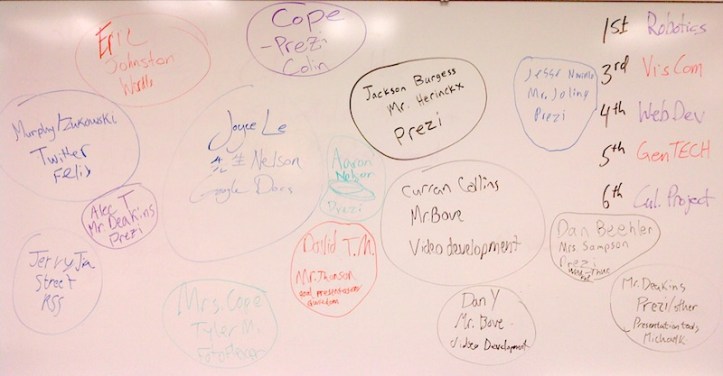 Eric
Johnston
Cope
- Prezi
Colin
1st Robotics
3rd VisCom
4th WebDev
5th GenTECH
6th Cul. Project
Jackson Burgess
Mr. Herinckx
Prezi
Jesse
Mr. Joling
Prezi
Murphy
Twitter
Felix
Joyce Le
Nelson
Google Docs
Aaron
Nelson
Prezi
Alec T.
Mr. Deakins
Prezi
Curran Collins
Mr Bove
Video development
Dan Beehler
Mrs. Sampson
Prezi
David T.M.
Mr. Thonson
and presentation
Jerry Jia
Street
RSS
Mrs. Cope
Tyler M.
Dan Y
Mr. Bove
Video Development
Mr. Deakins
Prezi/other
Presentation tools
Michael K.